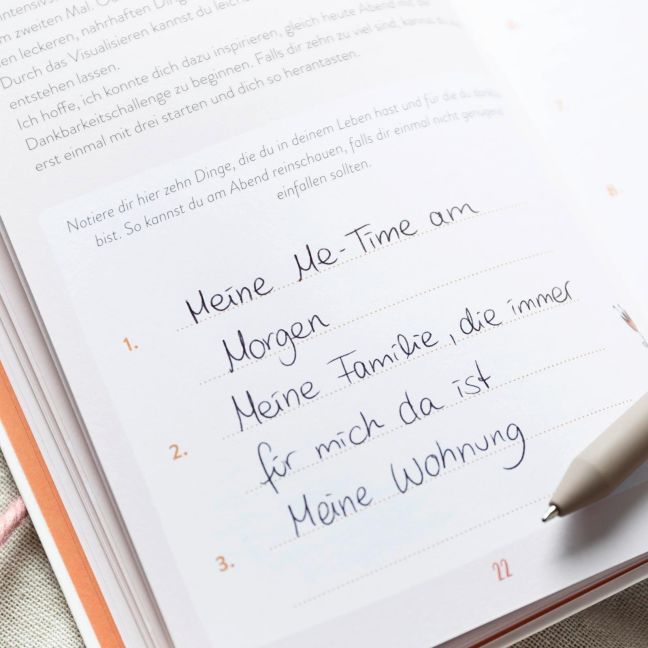 intensivs
m zweiten Mal.
en leckeren, nahrhaften Ding
Durch das Visualisieren kannst du leich
entstehen lassen.
Ich hoffe, ich konnte dich dazu inspirieren, gleich heute Abend mit der
Dankbarkeitschallenge zu beginnen. Falls dir zehn zu viel sind, kannst du
erst einmal mit drei starten und dich so herantasten.
Notiere dir hier zehn Dinge, die du in deinem Leben hast und für die du dankbar
bist. So kannst du am Abend reinschauen, falls dir einmal nicht genügend
einfallen sollten.
Meine Me-Time am
1.
Morgen
Meine Familie, die immer
2.
für mich da ist
Meine Wohnung
3.
22
8.